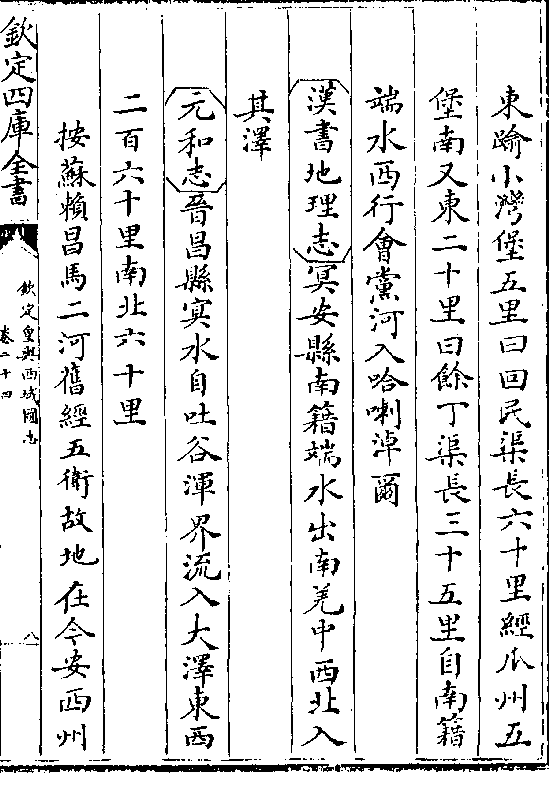 東踰小灣堡五里曰回民渠長六十里經瓜州五
堡南又東二十里曰餘丁渠長三十五里自南籍
端水西行會黨河入哈喇淖爾
漢書地理志冥安縣南籍端水出南羌中西北入
其澤
元和志晉昌縣冥水自吐谷渾界流入大澤東西
二百六十里南北六十里
按蘇賴昌馬二河舊經五衛故地在今安西州
欽定四庫全書
欽定皇輿西域圖志
卷二十四
八